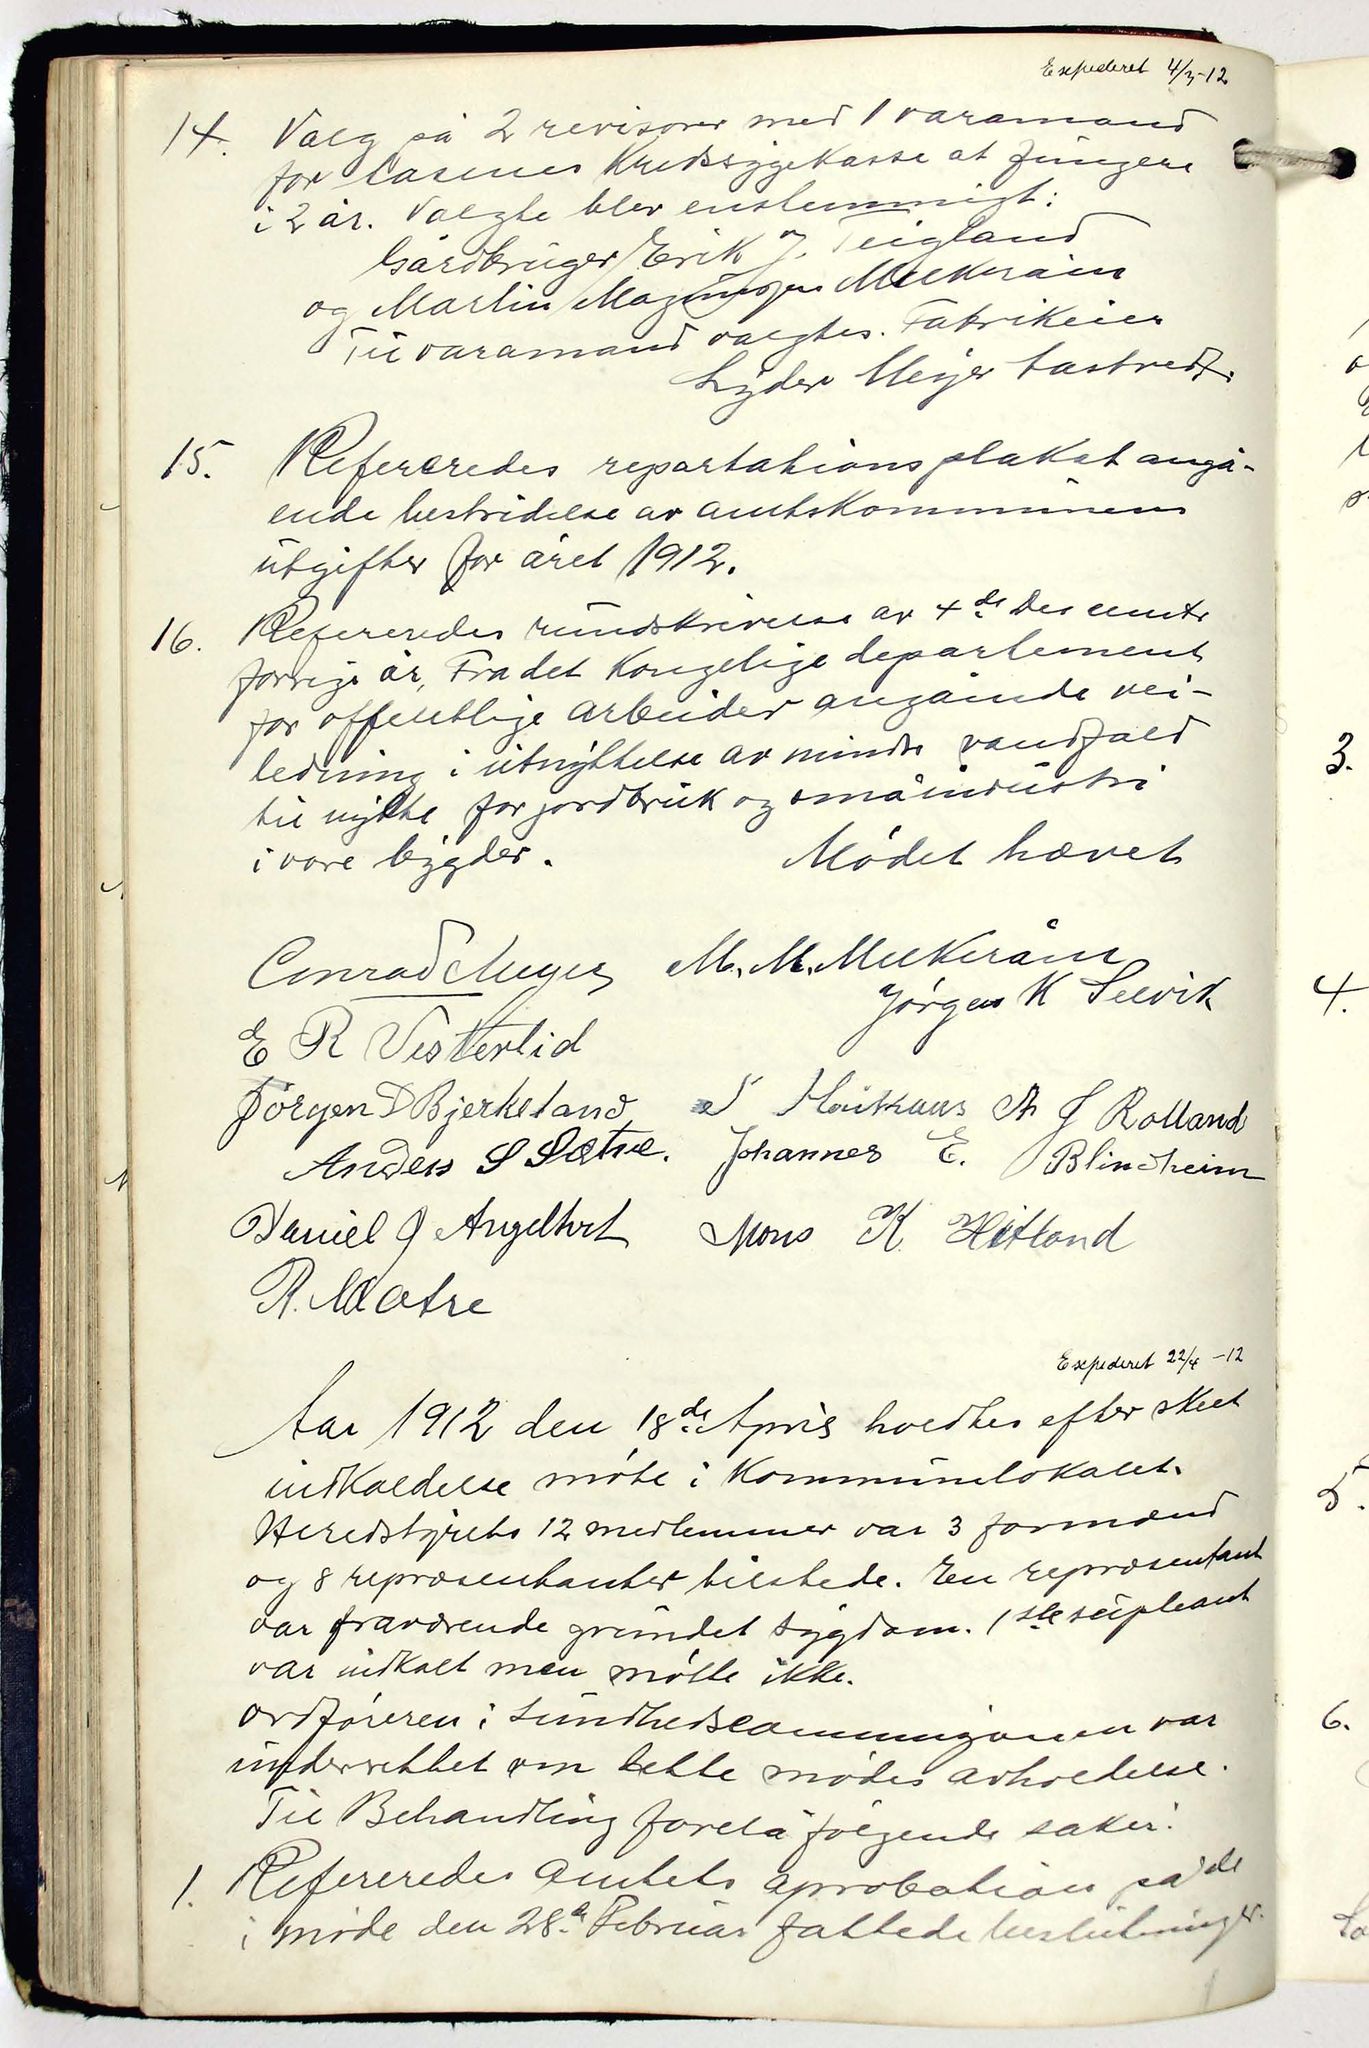 Expederet 4/3-12
14. Valg på 2 revisorer med 1 varamand
for Laxenes Kredssygekasse at fungere
i 2 år. Valgte blev enstemmigt:
Gårdbruger Erik J. Teigland
og Martin Magnusen Melkeråen
Til varamand valgtes. Fabrikeier
Lyder Meyer Eastvedt.
15. Refereredes repartations plakat angå-
ende bestridelse av amtskommunens
utgifter for året 1912.
16. Refereredes rundskrivelse av 4de Decembr
forrige år, Fra det Kongelige departement
for offentlige arbeider angående vei-
ledning i utnyttelse av mindre vandfald
til nytte for jordbruk og småindustri
i vore bygder. Mødet hævet
Conrad Meyer M. M. Melkeråen
Jørgen K Selvik
E R Vesterlid
Jørgen D Bjerkeland Haukaas A J Rolland
Anders S Sætre. Johannes E. Blindheim
Daniel J Angeltvet Mons K. Hitland
R. Mætre
Expederet 22/4-12
Aar 1912 den 18de April holdtes efter skeet
indkaldelse møte i Kommunelokalet.
Heredstyrets 12 medlemmer var 3 formænd
og 8 repræsentanter tilstede. En repræsentant
var fraværende grundet sygdom. 1ste supleant
var indkalt men møtte ikke.
Ordføreren i Sundhedscommisjonen var
underrettet om dette mødes avholdelse.
Til Behandling forelå følgende saker:
1. Refereredes amtets aprobation på de
i møde den 28de Februar fattede beslutninger.
3.
4.
5.
6.